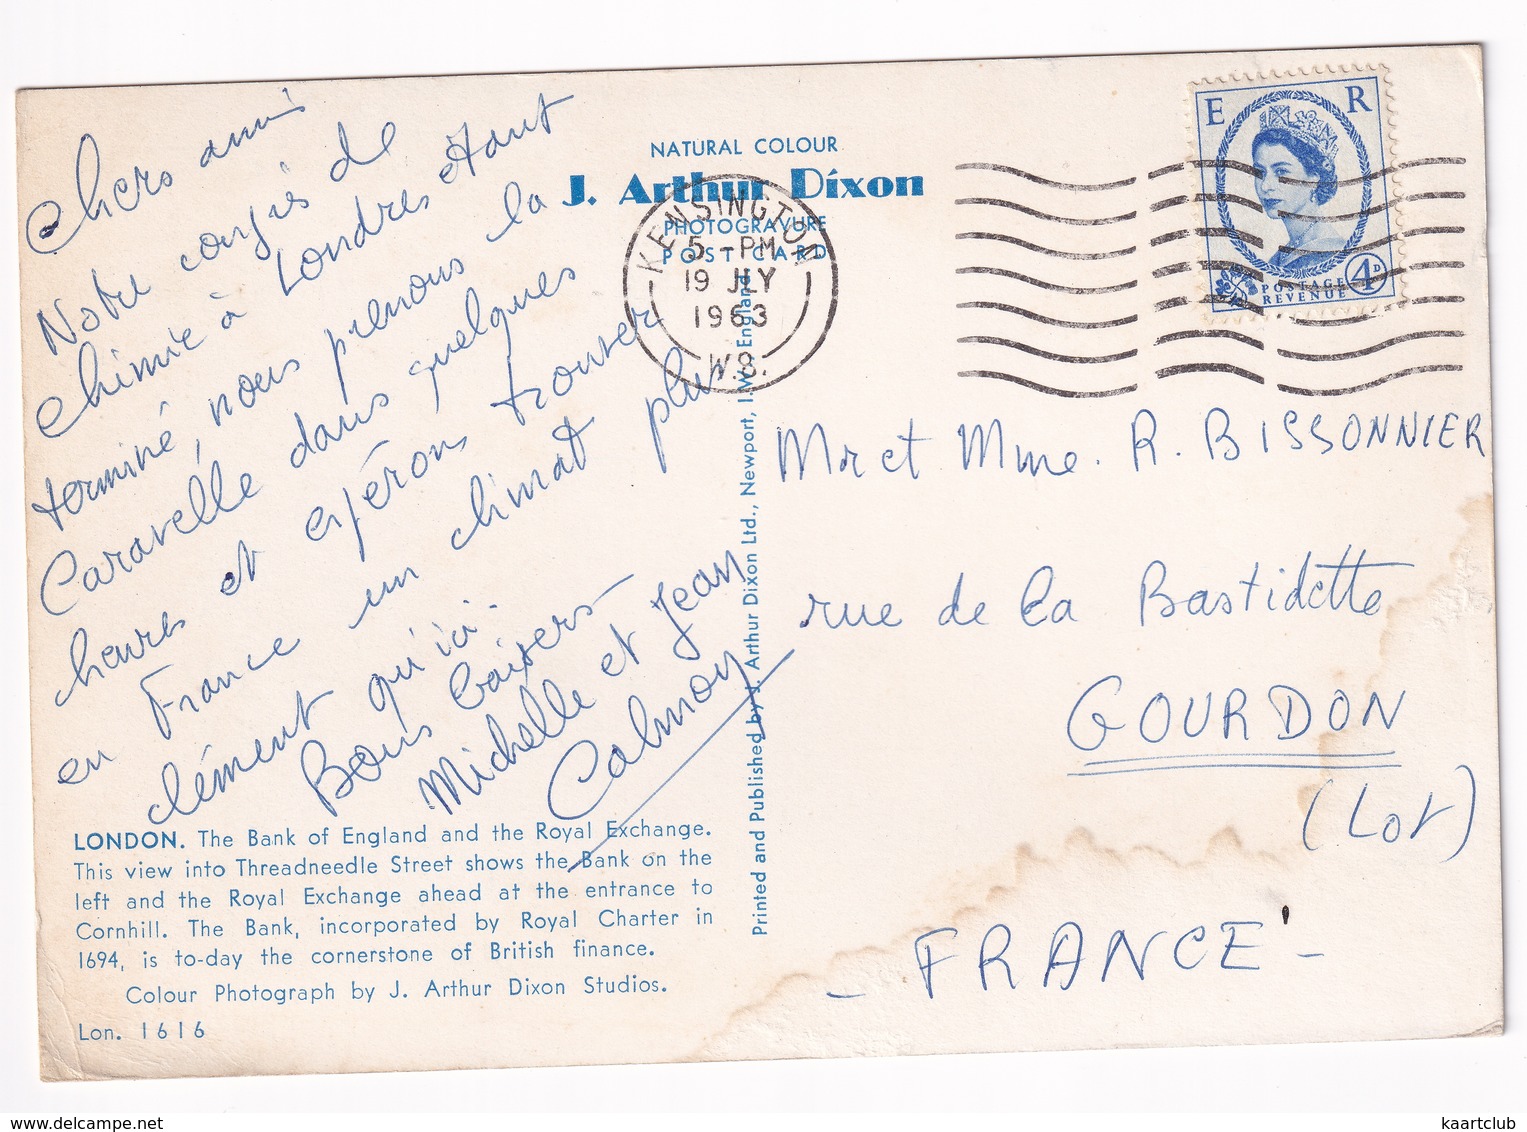 Chers amis
Notre congrès de
chimie à Londres étant
terminé, nous prenons la
Caravelle dans quelques
heures et espérons trouver
en France un climat plus
clément qu'ici.
Bons baisers
Michelle et Jean
Calmon
LONDON. The Bank of England and the Royal Exchange.
This view into Threadneedle Street shows the Bank on the
left and the Royal Exchange ahead at the entrance to
Cornhill. The Bank, incorporated by Royal Charter in
1694, is to-day the cornerstone of British finance.
Colour Photograph by J. Arthur Dixon Studios.
Lon. 1616
NATURAL COLOUR
J. Arthur Dixon
PHOTOGRAVURE
POST CARD
KENSINGTON
5 - PM
19 JLY
1963
W.8.
Printed and Published by J. Arthur Dixon Ltd., Newport, I.W. England
E R
POSTAGE
REVENUE
4D
Mr et Mme. R. BISSONNIER
rue de la Bastidette
GOURDON
(Lot)
- FRANCE -
kaartclub